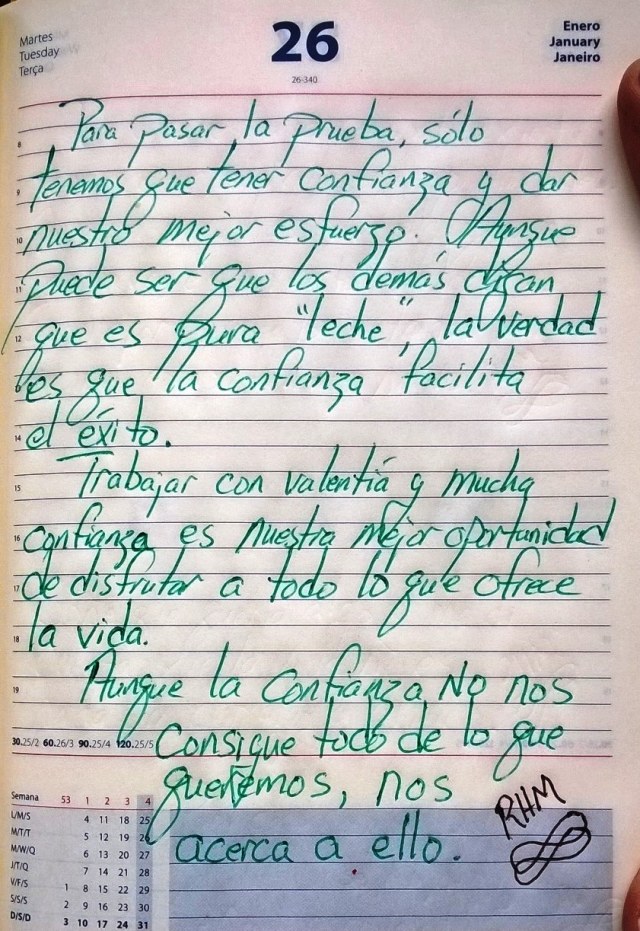 Martes
Tuesday
Terça
26
26-340
Enero
January
Janeiro
8
Para pasar la prueba, sólo
9 tenemos que tener confianza y dar
10 nuestro mejor esfuerzo. Aunque
11 puede ser que los demás digan
12 que es pura "leche", la verdad
es que la confianza facilita
14 el éxito.
15 Trabajar con valentía y mucha
16 confianza es nuestra mejor oportunidad
17 de disfrutar a todo lo que ofrece
18 la vida.
19 Aunque la confianza no nos
30.25/2 60.26/3 90.25/4 120.25/5 consigue todo de lo que
queremos, nos
acerca a ello.
RHM
Semana 53 1 2 3 4
L/M/S 4 11 18 25
M/T/T 5 12 19 26
M/W/Q 6 13 20 27
J/T/Q 7 14 21 28
V/F/S 1 8 15 22 29
S/S/S 2 9 16 23 30
D/S/D 3 10 17 24 31